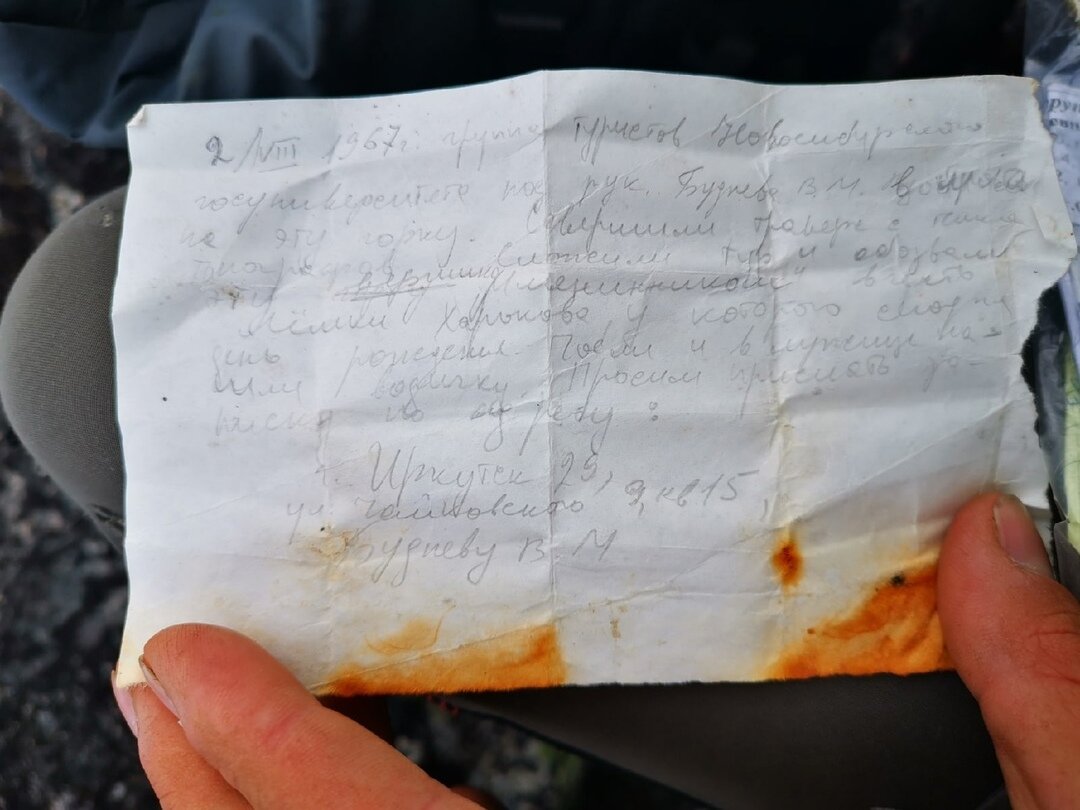 2/VIII 1967г. группа туристов Новосибирского
госуниверситета под рук. Буднева В.М. вошла
на эту горку. Совершили траверс с пика
топографов. Сложили тур и обозвали
эту вершину "Именинником" в честь
Лёшки Харькова у которого сегодня
день рождения.
и в
водичку. Просим прислать за-
писку по адресу:
г. Иркутск 29,
ул. Чайковского 9, кв 15,
Будневу В.М